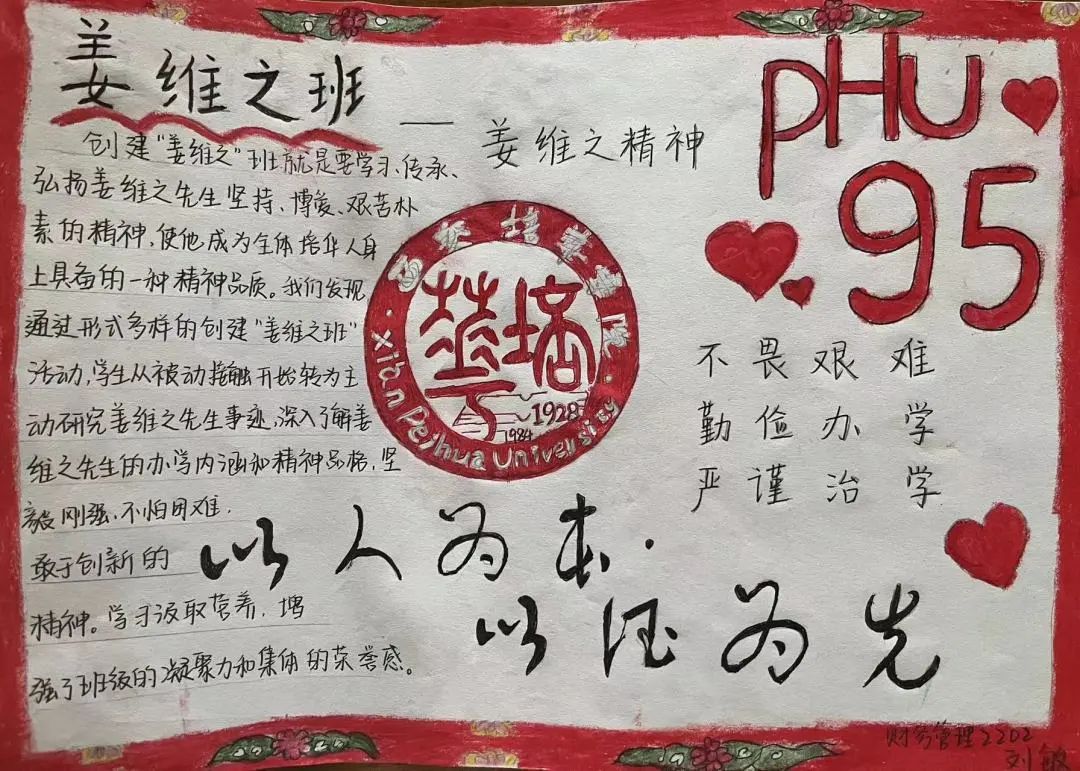 姜维之班
——姜维之精神
创建"姜维之"班就是要学习、传承、
弘扬姜维之先生坚持、博爱、艰苦朴
素的精神,使他成为全体培华人身
上具备的一种精神品质。我们发现
通过形式多样的创建"姜维之班"
活动,学生从被动接触开始转为主
动研究姜维之先生事迹,深入了解姜
维之先生的办学内涵和精神品格,坚
毅刚强、不怕困难、
敢于创新的
精神。学习汲取营养,增
强了班级的凝聚力和集体的荣誉感。
西安培华学院
華培
1928
1984
·Xian Peihua University·
PHU
95
不畏艰难
勤俭办学
严谨治学
以人为本.
以德为先
财务管理2202
刘敏